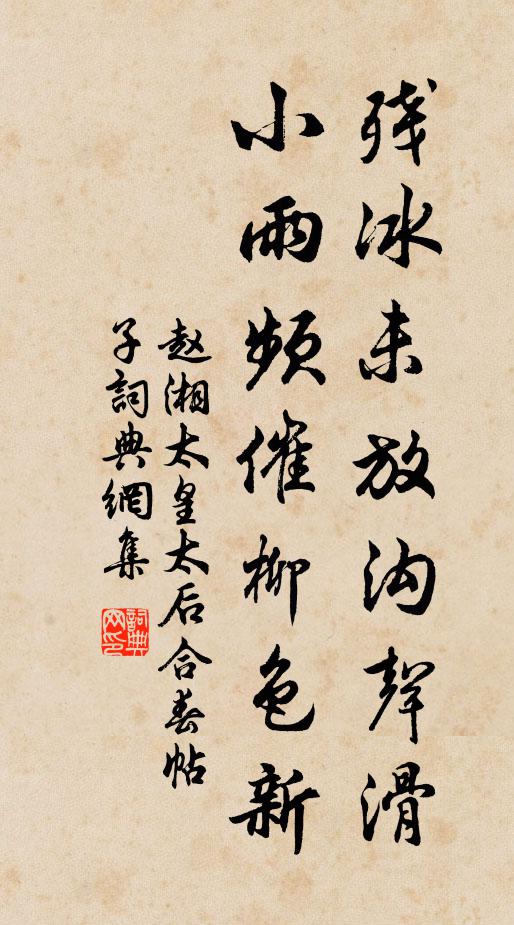 残冰未放沟聲滑
小雨頻催柳色新
赵湘太皇太后合春帖
子詞典網集
詞典网印